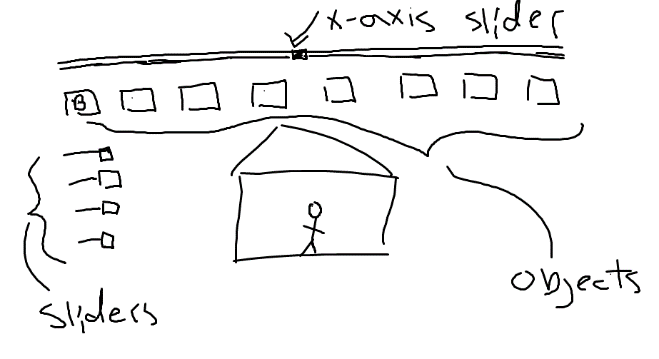 x-axis slider
B
objects
sliders